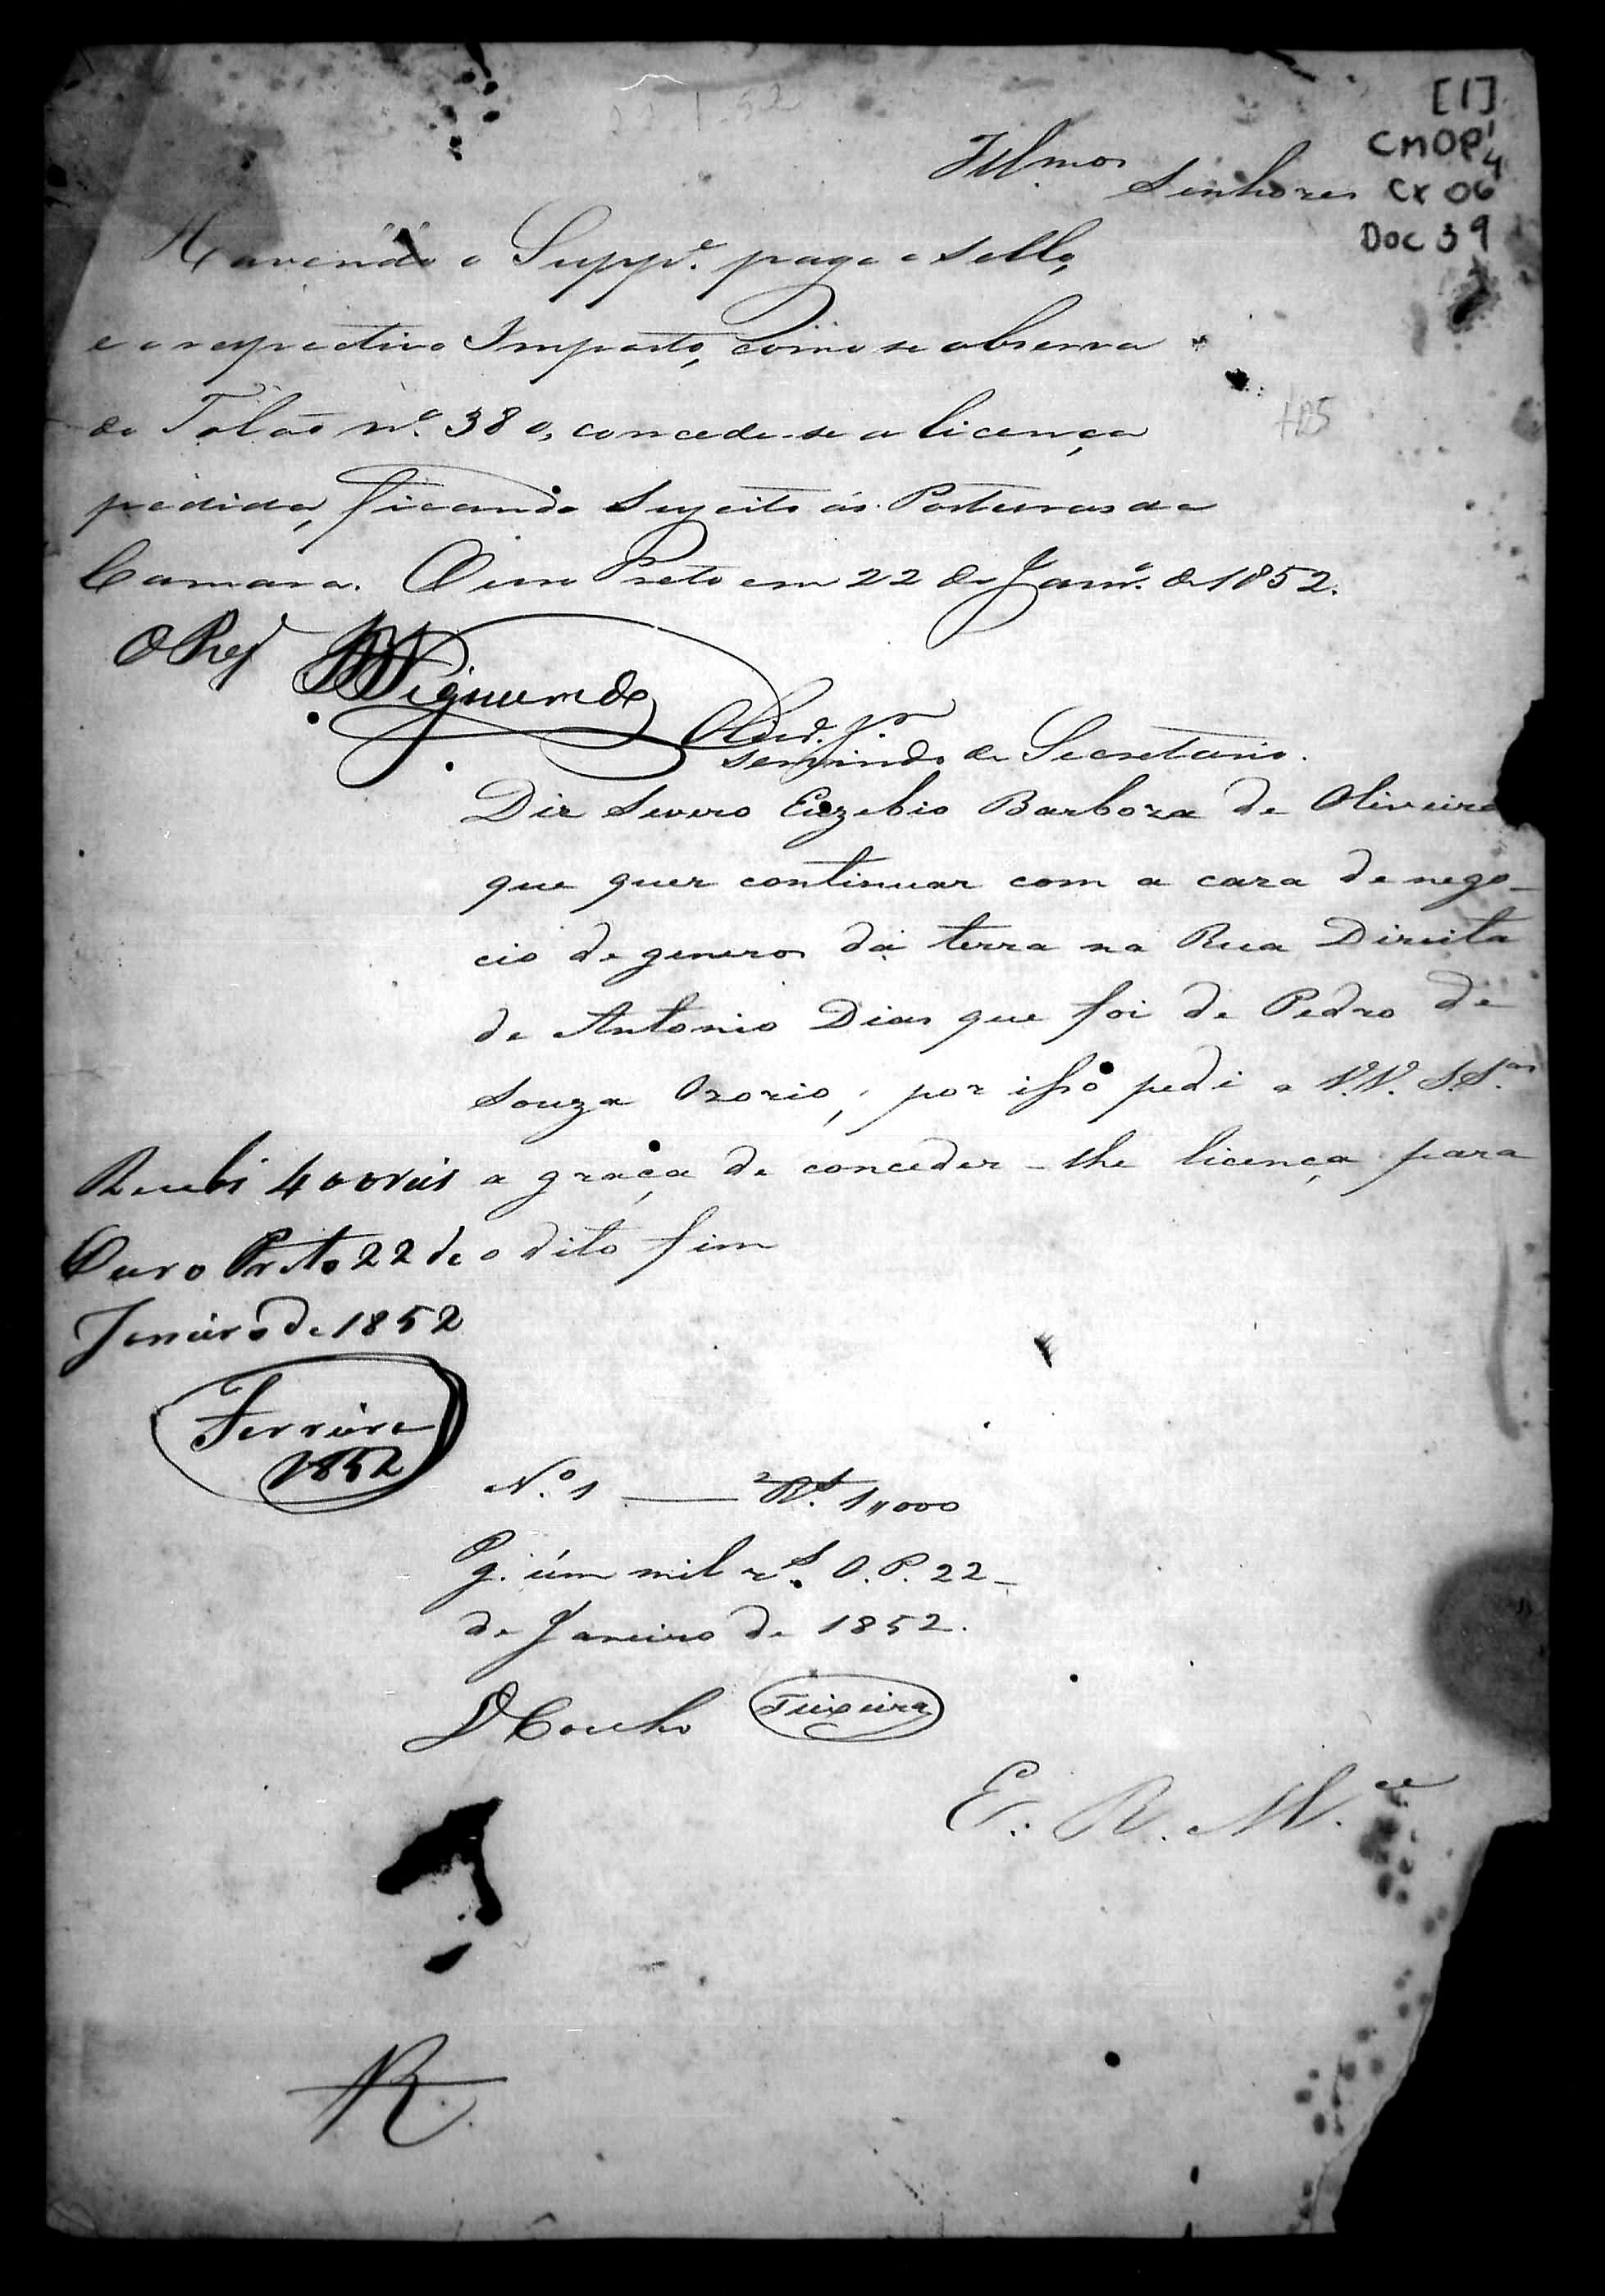 22-1-52
[1]
CMOP 1/4
Cx 06
Doc 39
Illmos
Senhores
Havendo o Suppe. pago o sello,
e o respectivo Imposto, como se observa
do Talão nº. 380, concede-se a licença
pedida, ficando sujeito ás Posturas da
Camara. Ouro Preto em 22 de Janrº. de 1852.
O Presⁱ
servindo de Secretario.
Diz Severo Euzebio Barboza de Oliveira
que quer continuar com a caza de nego-
cio de generos da terra na Rua Direita
de Antonio Dias que foi de Pedro de
Souza Ozorio, por isso pedi a V.V. S.Sas
a graça de conceder-lhe licença para
o dito fim
Recebi 400 reis
Ouro Preto 22 de
Janeiro de 1852
Ferreira
1852
N.º 1 — Rs. 1,,000
Pg. úm mil rs. O.P. 22-
de Janeiro de 1852.
Coucho Teixeira
E. R. M.ce
R.